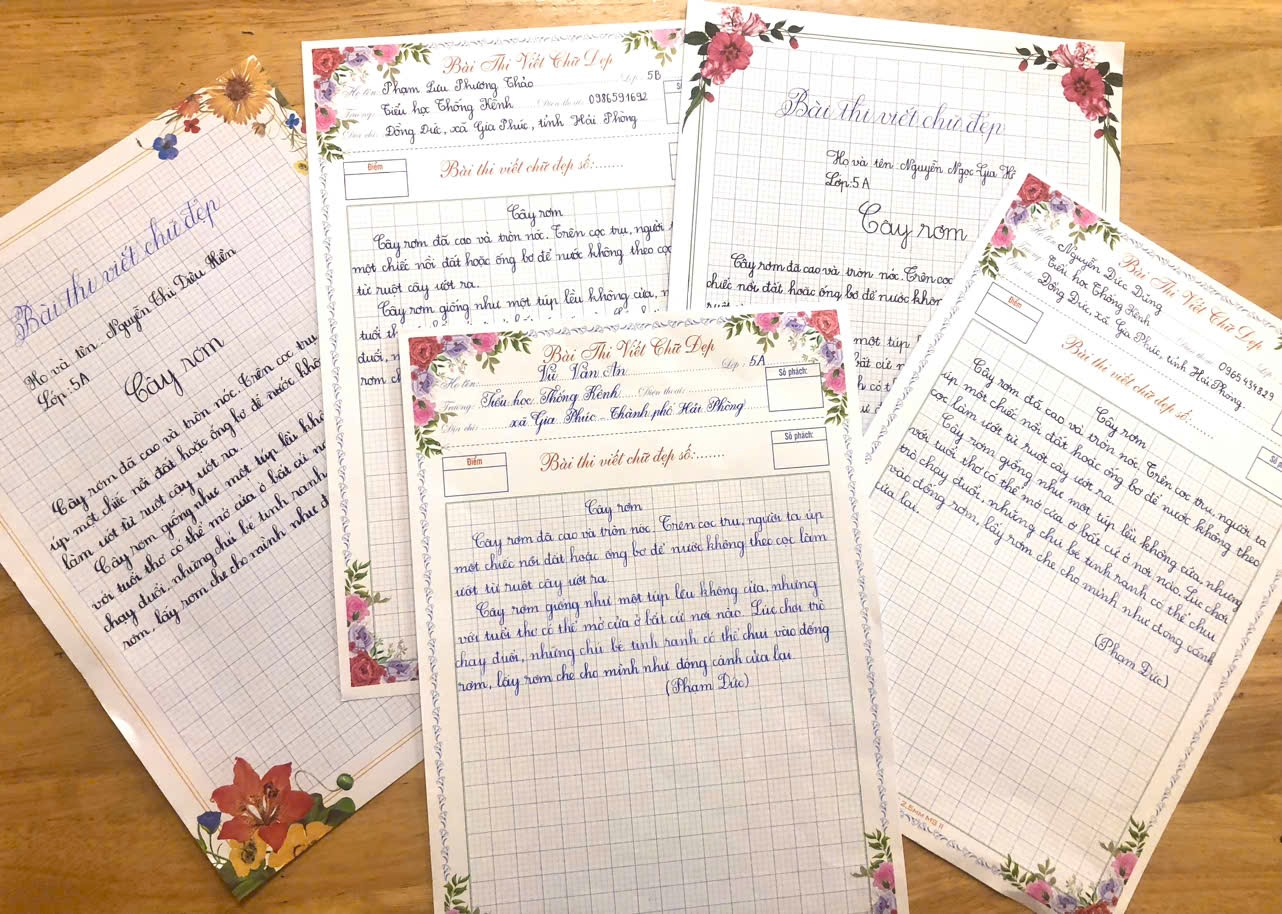 Bài thi viết chữ đẹp
Họ và tên: Nguyễn Thị Diệu Hiền
Lớp: 5A
Cây rơm
Cây rơm đã cao và tròn nóc. Trên cọc trụ
úp một chiếc nồi đất hoặc ống bơ để nước khô
làm ướt từ ruột cây ướt ra.
Cây rơm giống như một túp lều khô
với tuổi thơ có thể mở cửa ở bất cứ nơ
chạy đuổi, những chú bé tinh ranh
rơm, lấy rơm che cho mình như đ
Bài Thi Viết Chữ Đẹp
Họ tên: Phạm Lưu Phương Thảo Lớp: 5B
Trường: Tiểu học Thống Kênh Điện thoại: 0986591692
Địa chỉ: Đồng Đức, xã Gia Phúc, tỉnh Hải Phòng
Điểm
Bài thi viết chữ đẹp số:.......
Cây rơm
Cây rơm đã cao và tròn nóc. Trên cọc trụ, người
một chiếc nồi đất hoặc ống bơ để nước không theo cọc
từ ruột cây ướt ra.
Cây rơm giống như một túp lều không cửa, n
tuổi th
đuổi, n
rơm ch
Bài thi viết chữ đẹp
Họ và tên: Nguyễn Ngọc Gia H
Lớp: 5A
Cây rơm
Cây rơm đã cao và tròn nóc. Trên cọc
chiếc nồi đất hoặc ống bơ để nước khôn
một túp l
bất cứ n
có t
Bài Thi Viết Chữ Đẹp
Họ tên: Vũ Văn An Lớp: 5A
Trường: Tiểu học Thống Kênh Điện thoại:
Địa chỉ: xã Gia Phúc - Thành phố Hải Phòng
Số phách:
Điểm
Bài thi viết chữ đẹp số:.......
Số phách:
Cây rơm
Cây rơm đã cao và tròn nóc. Trên cọc trụ, người ta úp
một chiếc nồi đất hoặc ống bơ để nước không theo cọc làm
ướt từ ruột cây ướt ra.
Cây rơm giống như một túp lều không cửa, nhưng
với tuổi thơ có thể mở cửa ở bất cứ nơi nào. Lúc chơi trò
chạy đuổi, những chú bé tinh ranh có thể chui vào đống
rơm, lấy rơm che cho mình như đóng cánh cửa lại
(Phạm Đức)
Bài Thi Viết Chữ Đẹp
Nguyễn Đức Dũng
Tiểu học Thống Kênh 0965434829
Đồng Đức, xã Gia Phúc, tỉnh Hải Phòng
Điểm
Bài thi viết chữ đẹp số:.......
Cây rơm
Cây rơm đã cao và tròn nóc. Trên cọc trụ, người ta
úp một chiếc nồi đất hoặc ống bơ để nước không theo
cọc làm ướt từ ruột cây ướt ra.
Cây rơm giống như một túp lều không cửa, nhưng
với tuổi thơ có thể mở cửa ở bất cứ ở nơi nào. Lúc chơi
trò chạy đuổi, những chú bé tinh ranh có thể chui
vào đống rơm, lấy rơm che cho mình như đóng cánh
cửa lại.
(Phạm Đức)
2.5MM MS II